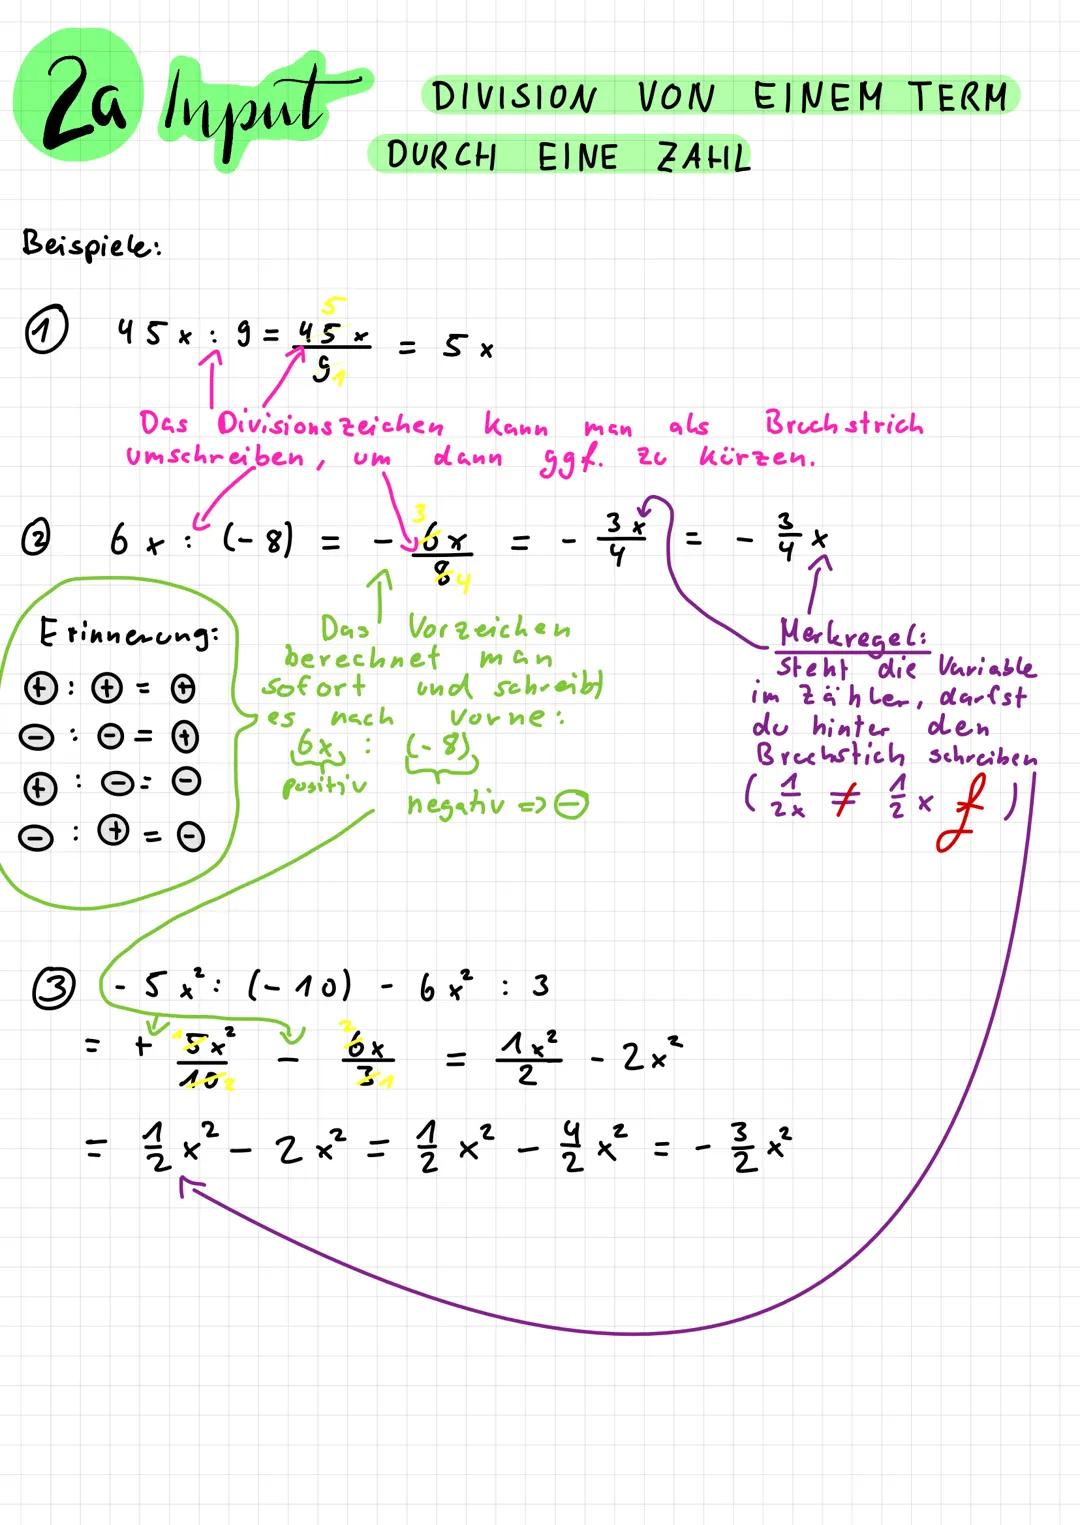 2a Input
DIVISION VON EINEM TERM
DURCH EINE ZAHL
Beispiele:
① 45x : 9 = 45x/9 = 5x
5
1
Das Divisionszeichen kann man als Bruchstrich
umschreiben, um dann ggf. zu kürzen.
② 6x : (-8) = - 6x/8 = - 3x/4 = - 3/4 x
3
4
Erinnerung:
+ : + = +
- : - = +
+ : - = -
- : + = -
Das Vorzeichen
berechnet man
sofort und schreibt
es nach vorne:
6x : (-8)
positiv
negativ => -
Merkregel:
Steht die Variable
im Zähler, darfst
du hinter den
Bruchstich schreiben
( 1/2x ≠ 1/2 x f )
③ - 5x² : (-10) - 6x² : 3
= + 5x²/10 - 6x/3 = 1x²/2 - 2x²
1
2
2
1
= 1/2 x² - 2x² = 1/2 x² - 4/2 x² = - 3/2 x²